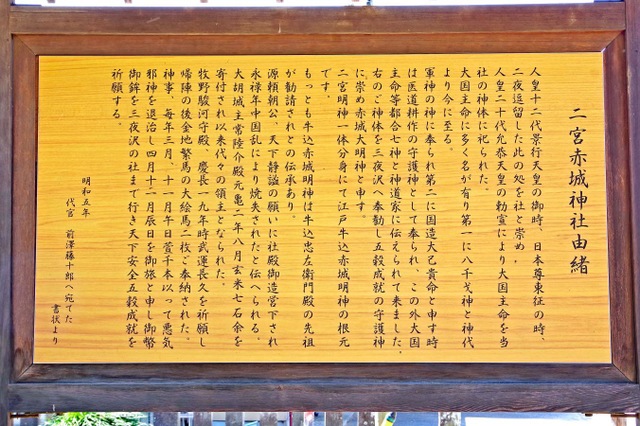 二宮赤城神社由緒
人皇十二代景行天皇の御時、日本尊東征の時、
二夜逗留した此の処を社と崇め、
人皇二十代允恭天皇の勅宣により大国主命を当
社の神体に祀られた。
大国主命に多く名が有り第一に八千戈神と神代
より今に至る。
軍神の神に奉られ第二に国造大己貴命と申す時
は医道耕作の守護神として奉られ、この外大国
主命等都合七神と神道家に伝えられて来ました。
右のご神体を三夜沢へ奉勧し五穀成就の守護神
に崇め赤城大明神と申す
二宮明神一体分身にて江戸牛込赤城明神の根元
です。
もっとも牛込赤城明神は牛込忠左衛門殿の先祖
が勧請されとの伝承あり。
源頼朝公、天下静謐の願いに社殿御造営下され
永禄年中国乱により焼失されたと伝へられる。
大胡城主常陸介殿元亀二年八月玄米七石余を
寄付され以来代々の領主となられた。
牧野駿河守殿、慶長一九年時武運長久を祈願し
帰陣の後金地繁馬の大絵馬二枚ご奉納された。
神事、毎年三月、十一月午日萱千本以って悪気
邪神を退治し四月十二月辰日を御旅と申し御幣
御鉾を三夜沢の社まで行き天下安全五穀成就を
祈願する。
明和五年
代官 前澤藤十郎へ宛てた
書状より